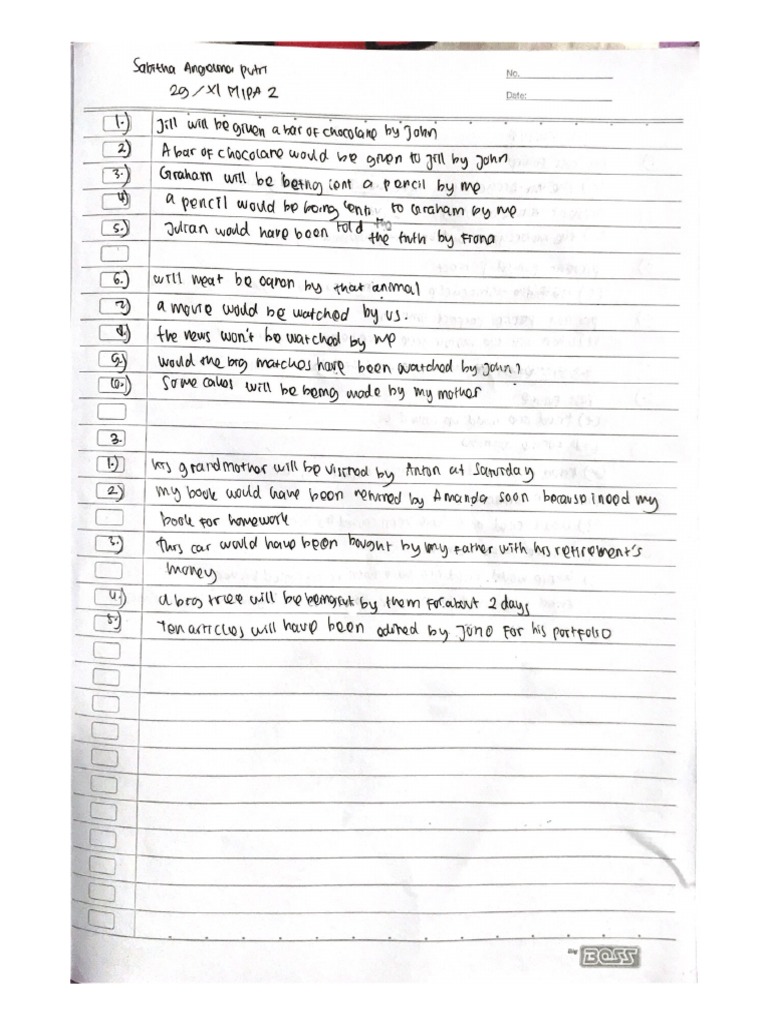 Sabitha Angelina Putri
29/XI MIPA 2
No.
Date:
1.) Jill will be given a bar of chocolate by John
2) A bar of chocolate would be given to Jill by John
3.) Graham will be being lent a pencil by me
4) a pencil would be being lent to Graham by me
5.) Julian would have been told the truth by Fiona
6.) will meat be eaten by that animal
7) a movie would be watched by us.
8.) the news won't be watched by me
9.) would the big matches have been watched by John?
10.) Some cakes will be being made by my mother
3.
1.) his grandmother will be visited by Anton at Saturday
2.) my book would have been returned by Amanda soon because i need my
book for homework
3.) this car would have been bought by my father with his retirement's
money
4.) a big tree will be being cut by them for about 2 days
5.) Ten articles will have been edited by Jono for his portfolio
by BOSS